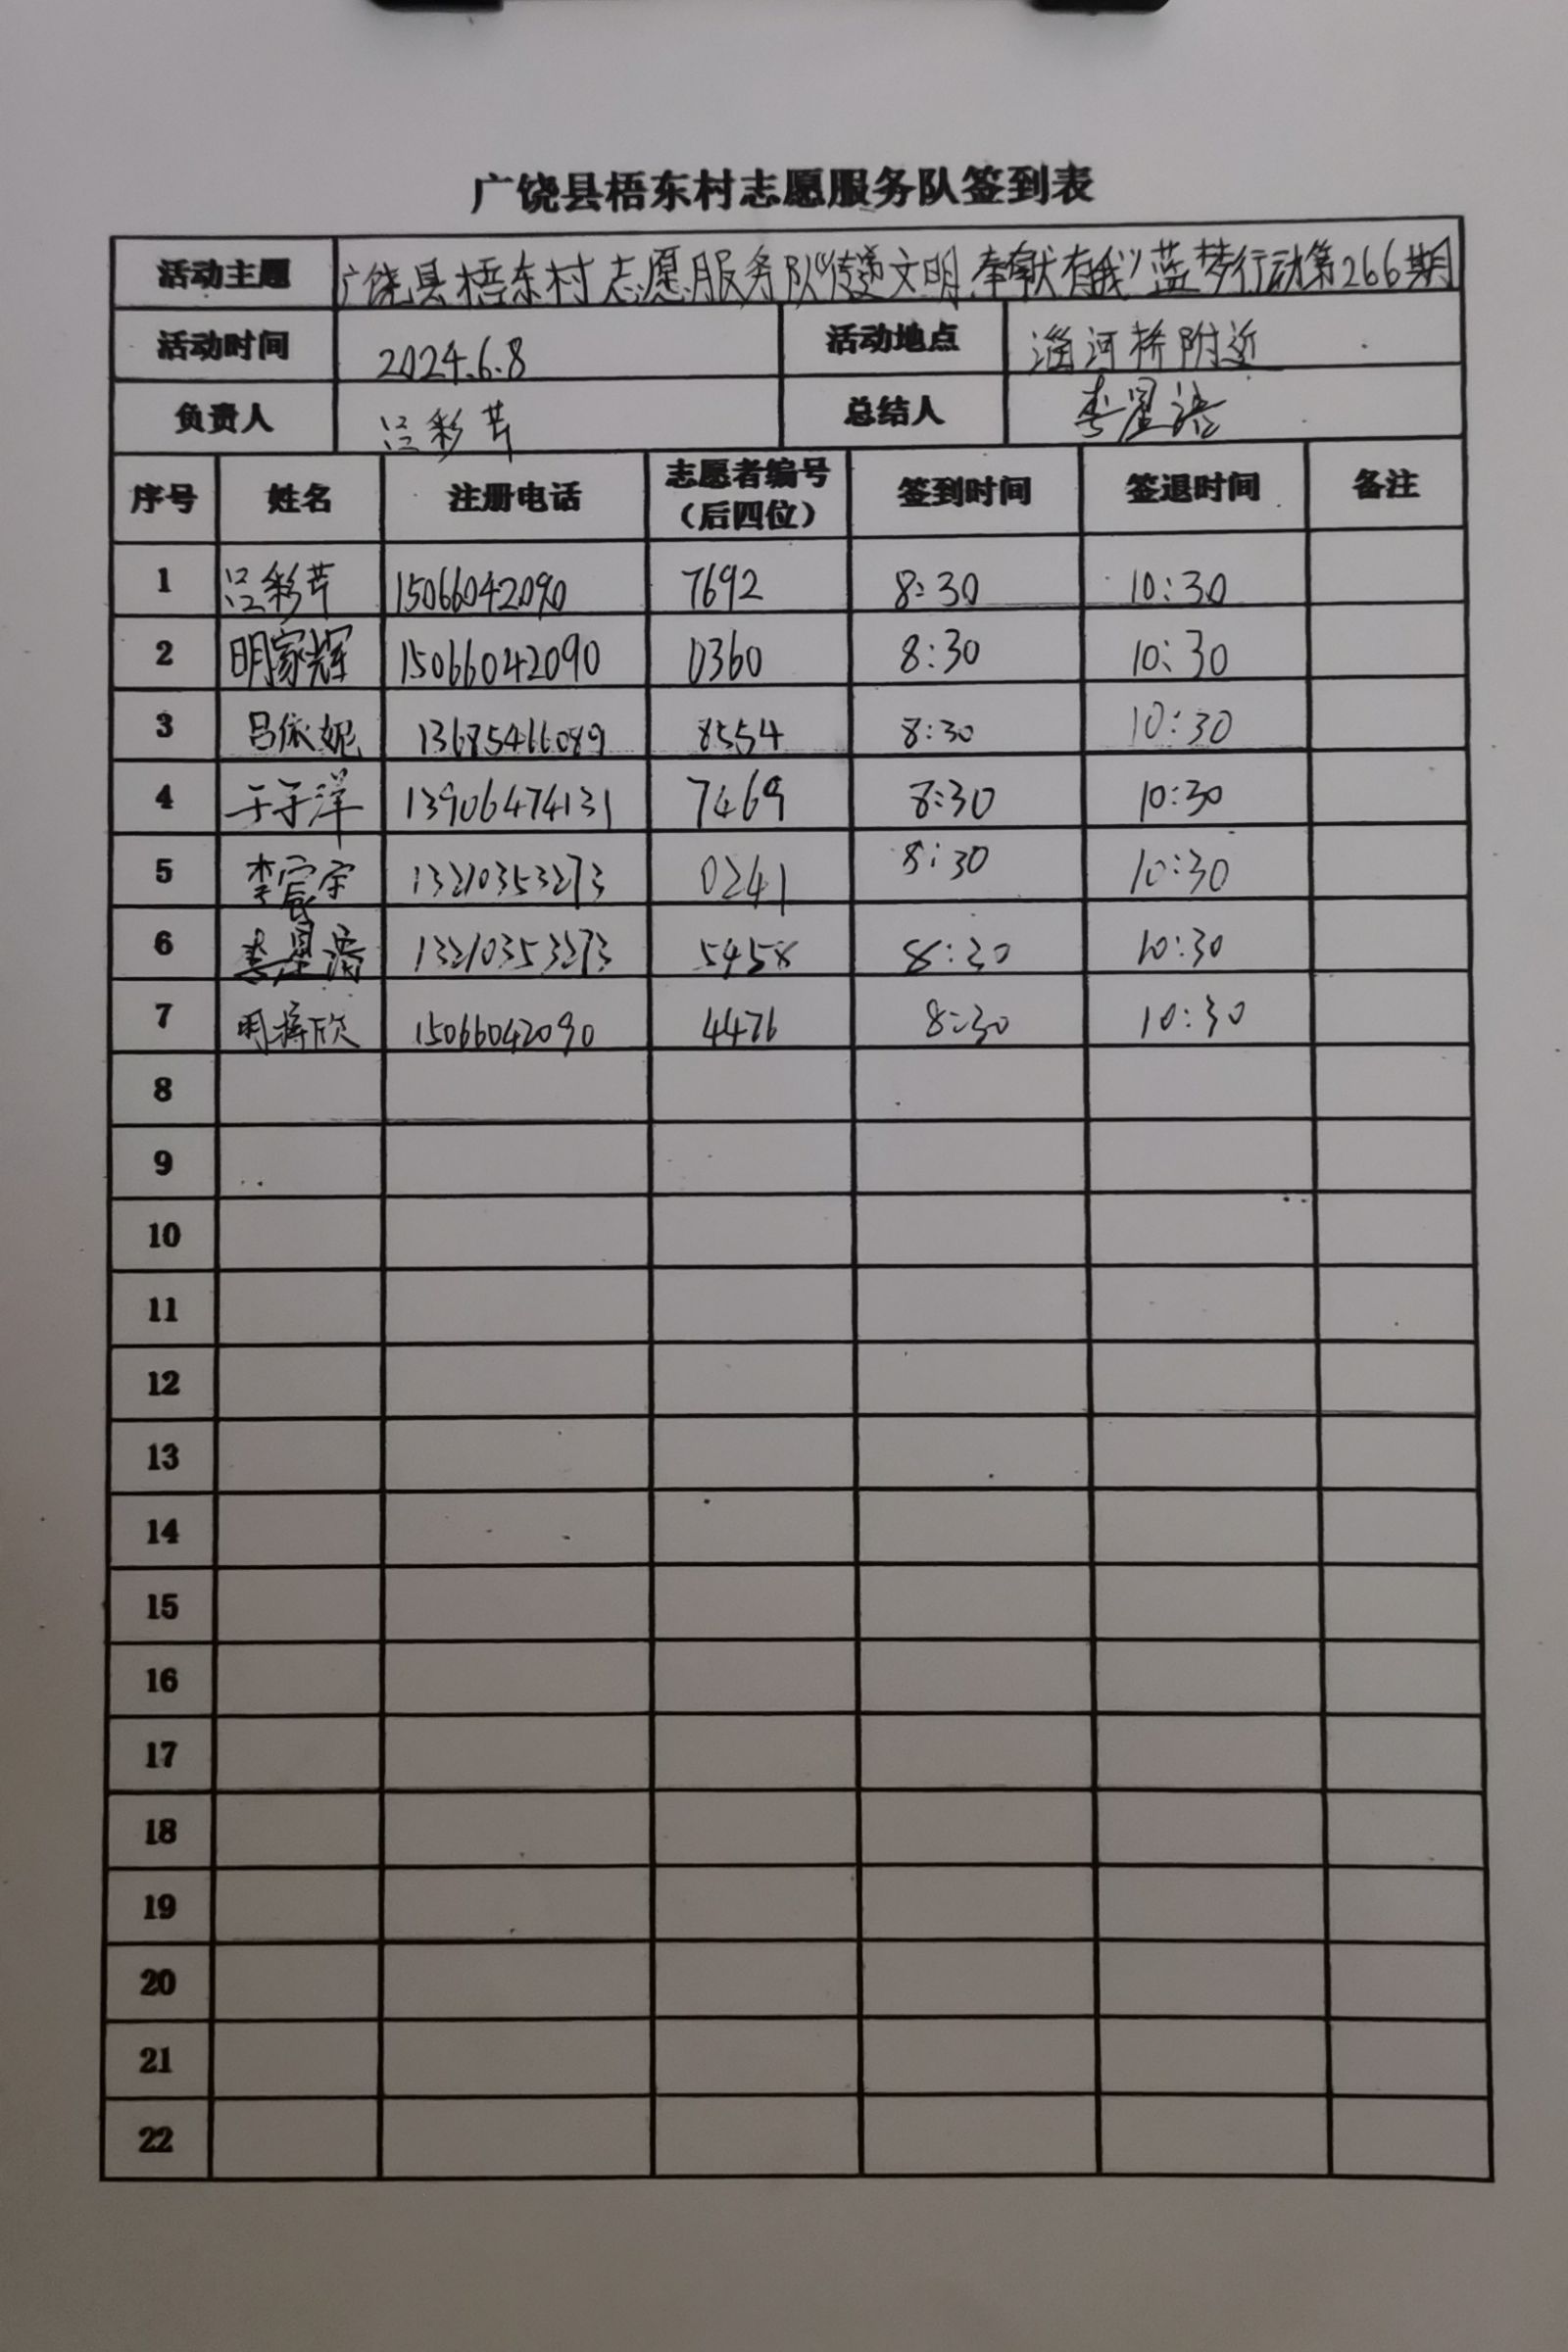 广饶县梧东村志愿服务队签到表
活动主题 广饶县梧东村志愿服务队“传递文明,奉献有我”蓝梦行动第266期
活动时间 2024.6.8 活动地点 淄河桥附近
负责人 吕彩芹 总结人 李星浯
序号 姓名 注册电话 志愿者编号（后四位） 签到时间 签退时间 备注
1 吕彩芹 15066042090 7692 8:30 10:30
2 明家辉 15066042090 0360 8:30 10:30
3 吕依妮 13685466089 8554 8:30 10:30
4 于子洋 13906474131 7469 8:30 10:30
5 李宸宇 13210353273 0241 8:30 10:30
6 李星 13210353273 5458 8:30 10:30
7 明 欣 15066042090 4476 8:30 10:30
8
9
10
11
12
13
14
15
16
17
18
19
20
21
22